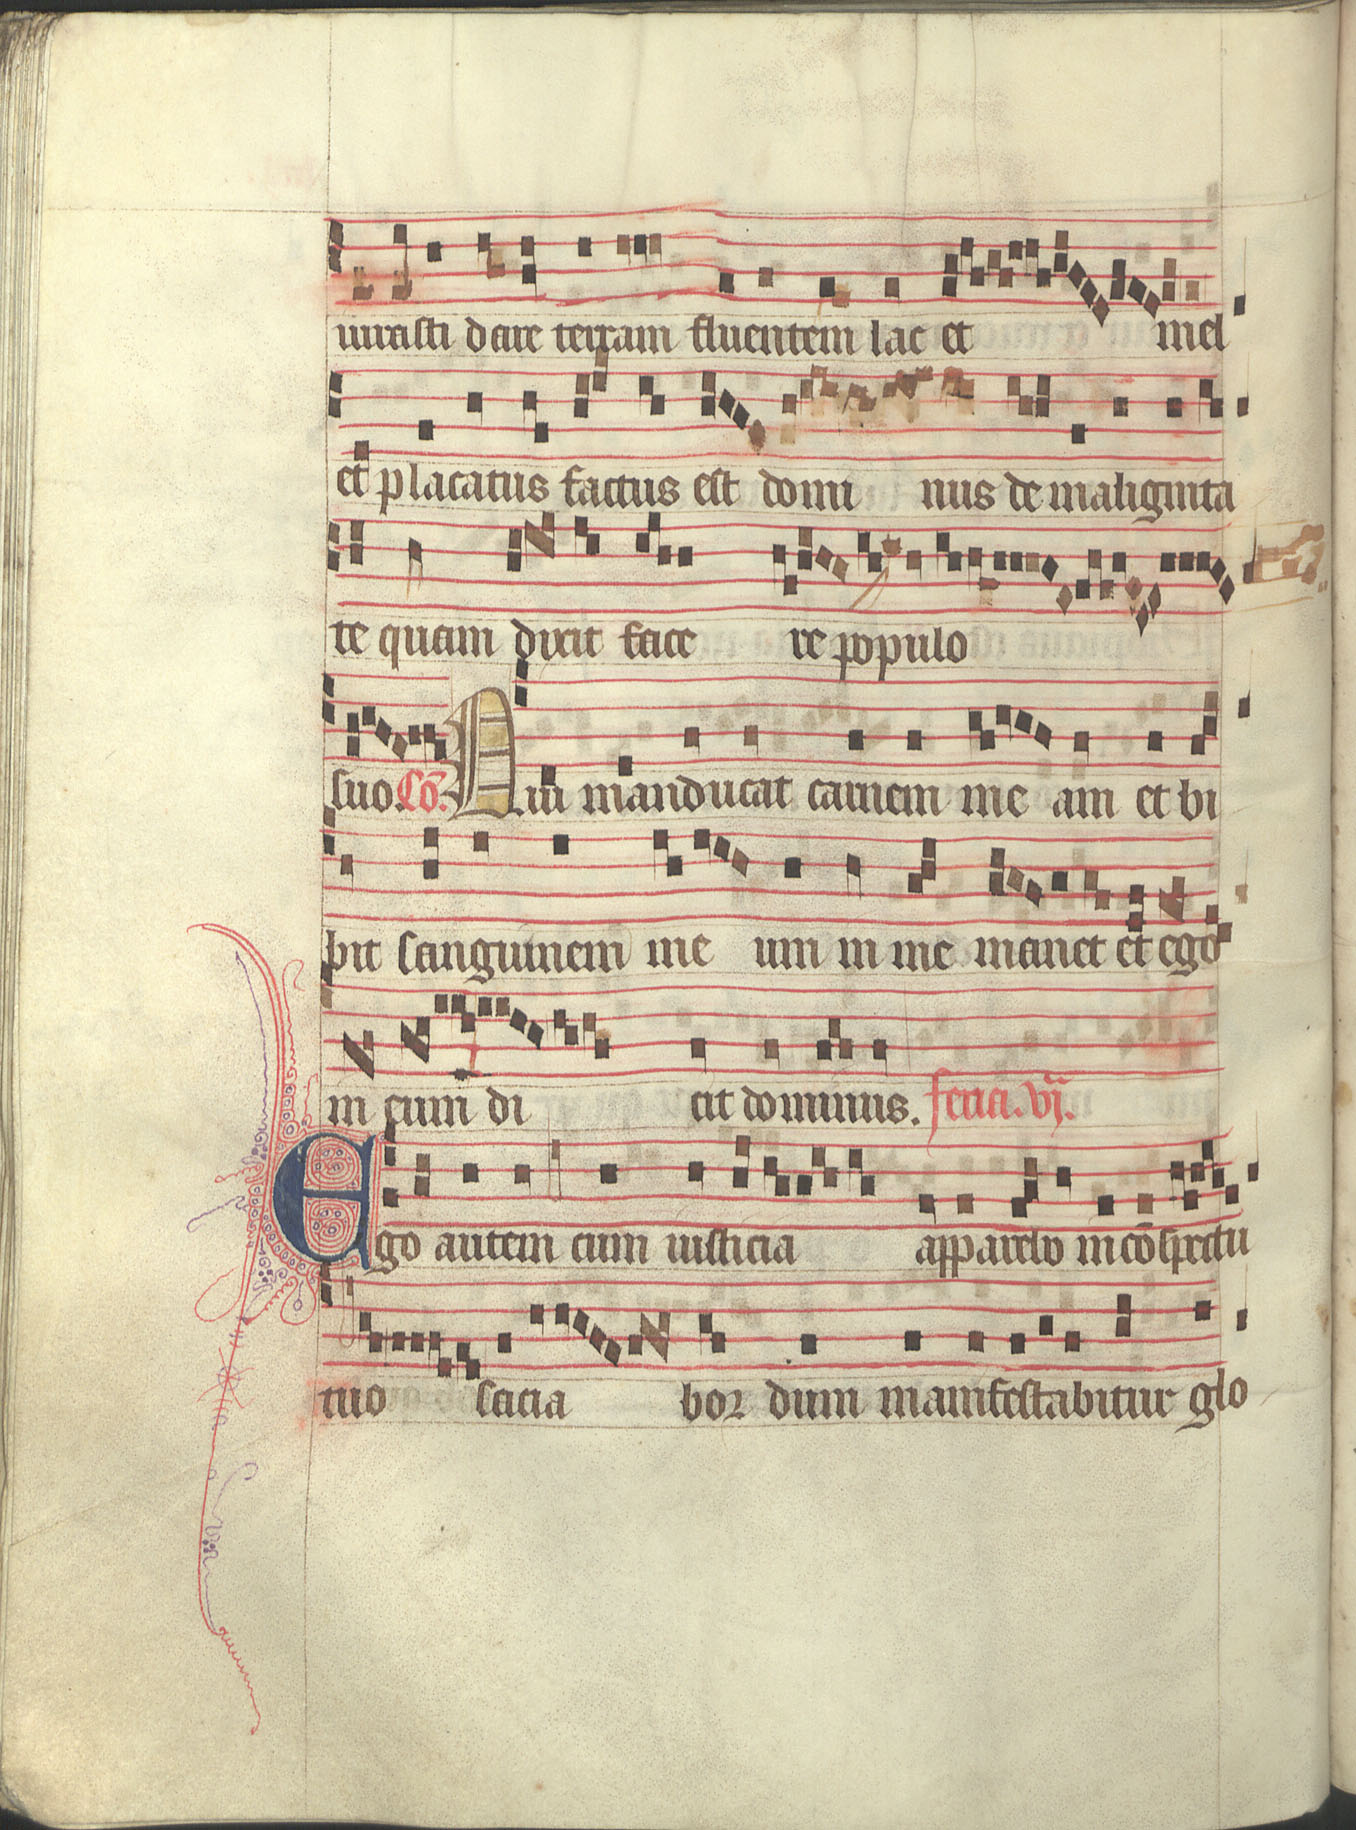 iurasti dare terram fluentem lac et mel
et placatus factus est domi nus de malignita
te quam dixit face re populo
suo. Cō. Qui manducat carnem me am et bi
bit sanguinem me um in me manet et ego
in eum di cit dominus. feria. vjª.
Ego autem cum iusticia apparebo in cōspectu
tuo sacia bor dum manifestabitur glo